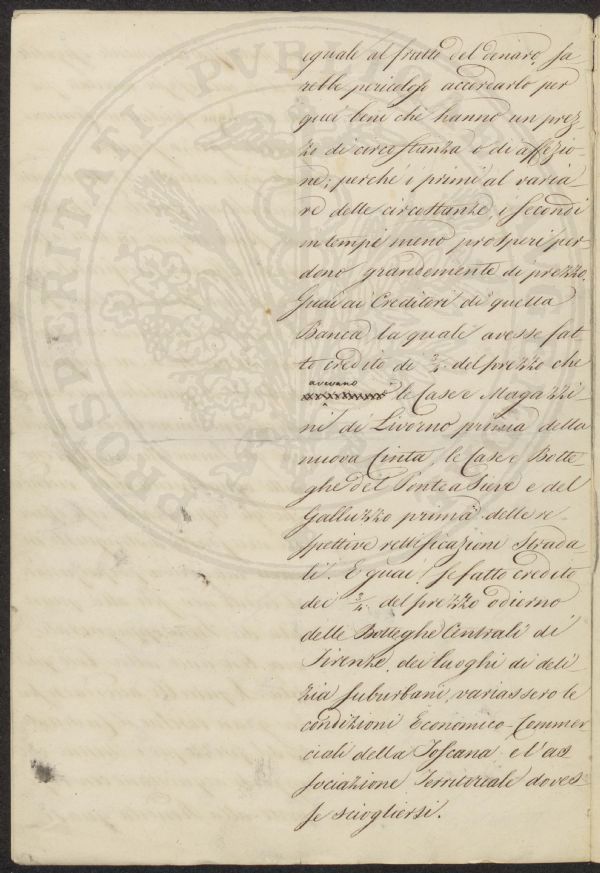 PROSPERITATI PVBLICAE
eguale al frutto del denaro, sa-
rebbe pericoloso accordarlo per
quei beni che hanno un prez-
zo di circostanza o di affezio-
ne; perchè i primi al varia-
re delle circostanze, i secondi
in tempi meno prosperi per
dono grandemente di prezzo.
Guai ai Creditori di quella
Banca, la quale avesse fat-
to credito di 3/4. del prezzo che
avevano
le Case e Magazzi-
ni di Livorno prima della
nuova Cinta, le Case e Botte-
ghe del Ponte a Sieve e del
Galluzzo prima delle re-
spettive rettificazioni strada-
li. E guai! se fatto credito
dei 3/4. del prezzo odierno
delle Botteghe Centrali di
Firenze, dei luoghi di deli-
zia suburbani, variassero le
condizioni Economico-Commer
ciali della Toscana e l'as
sociazione Territoriale doves
se sciogliersi.